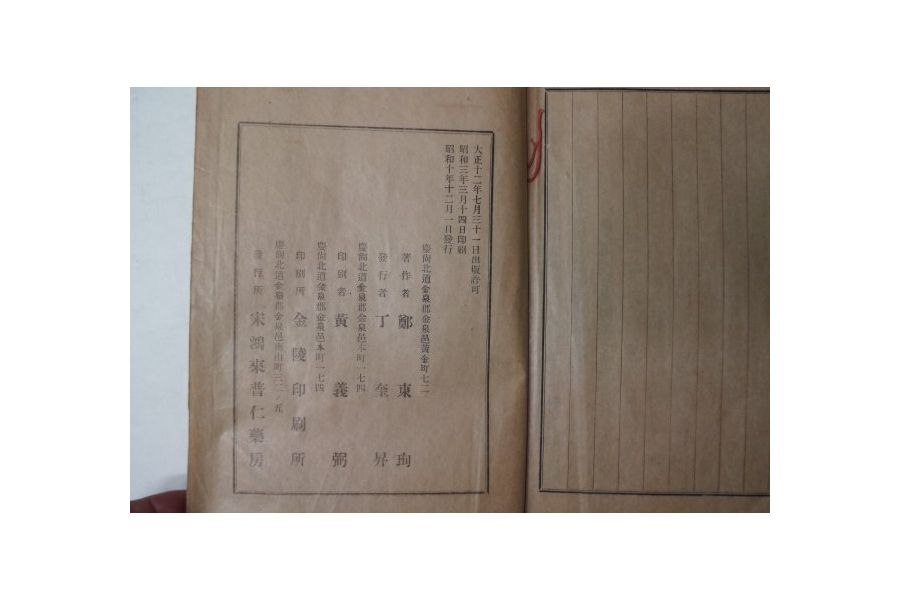 大正十二年七月三十一日出版許可
昭和三年三月十四日印刷
昭和十年十二月一日發行
慶尙北道金泉郡金泉邑黃金町七二
著作者 鄭東珣
發行者 丁奎昇
慶尙北道金泉郡金泉邑本町一七四
印刷者 黃義弼
慶尙北道金泉郡金泉邑本町一七四
印刷所 金陵印刷所
慶尙北道金泉郡金泉邑南山町三二ノ五
發行所 宋鴻來普仁藥房